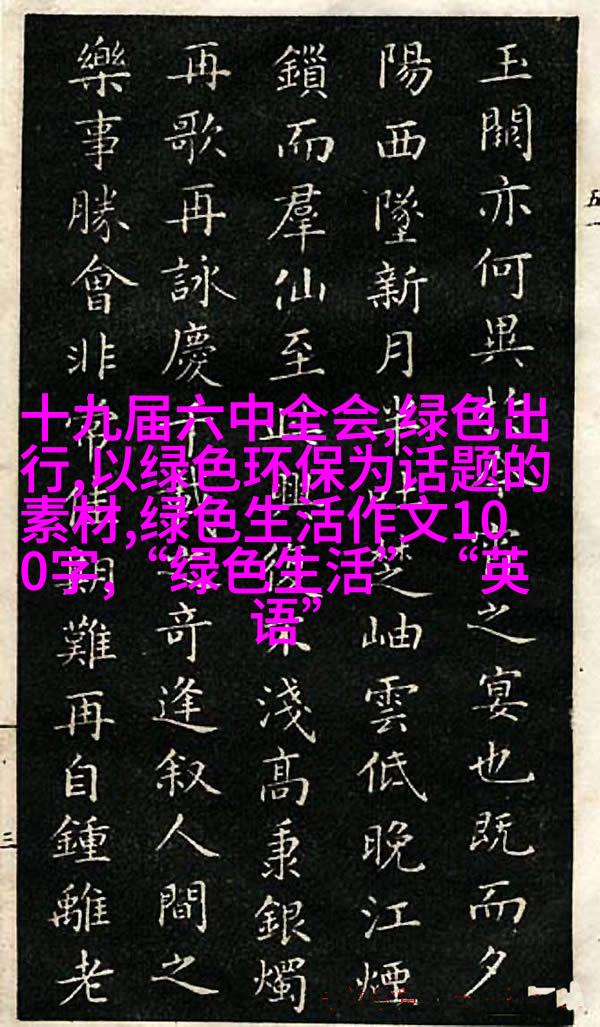 玉闕亦何異之宴也既而夕
陽西墜新月半楚岫雲低晚江煙
鎖而羣仙至興淺高秉銀燭
再歌再詠慶千載奇逢叙人間之
樂事勝會非常難再自鍾離老
十九届六中全会,绿色出
行,以绿色环保为话题的
素材,绿色生活作文10
0字,“绿色生活” “英
语”
五一
三